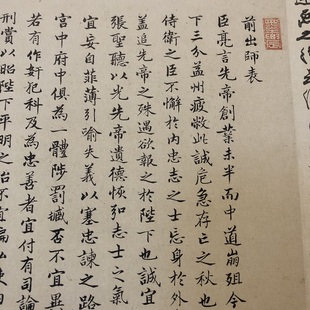 前出師表
臣亮言先帝創業未半而中道崩殂今
下三分益州疲敝此誠危急存亡之秋也
侍衛之臣不懈於內忠志之士忘身於外
蓋追先帝之殊遇欲報之於陛下也誠宜
張聖聽以光先帝遺德恢弘志士之氣
宜妄自菲薄引喻失義以塞忠諫之路
宮中府中俱為一體陟罰臧否不宜異
若有作奸犯科及為忠善者宜付有司論
刑賞以昭陛下平明之治不宜偏私使內